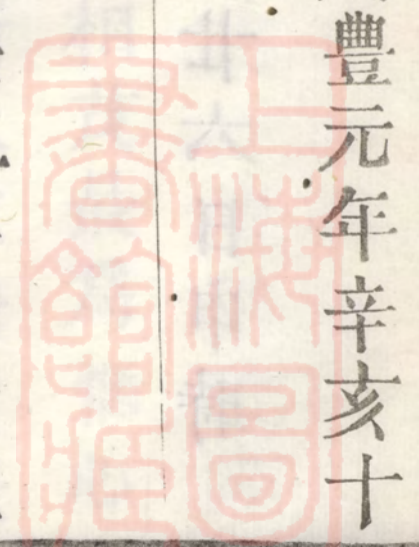 豐元年辛亥十
上海圖
書館藏